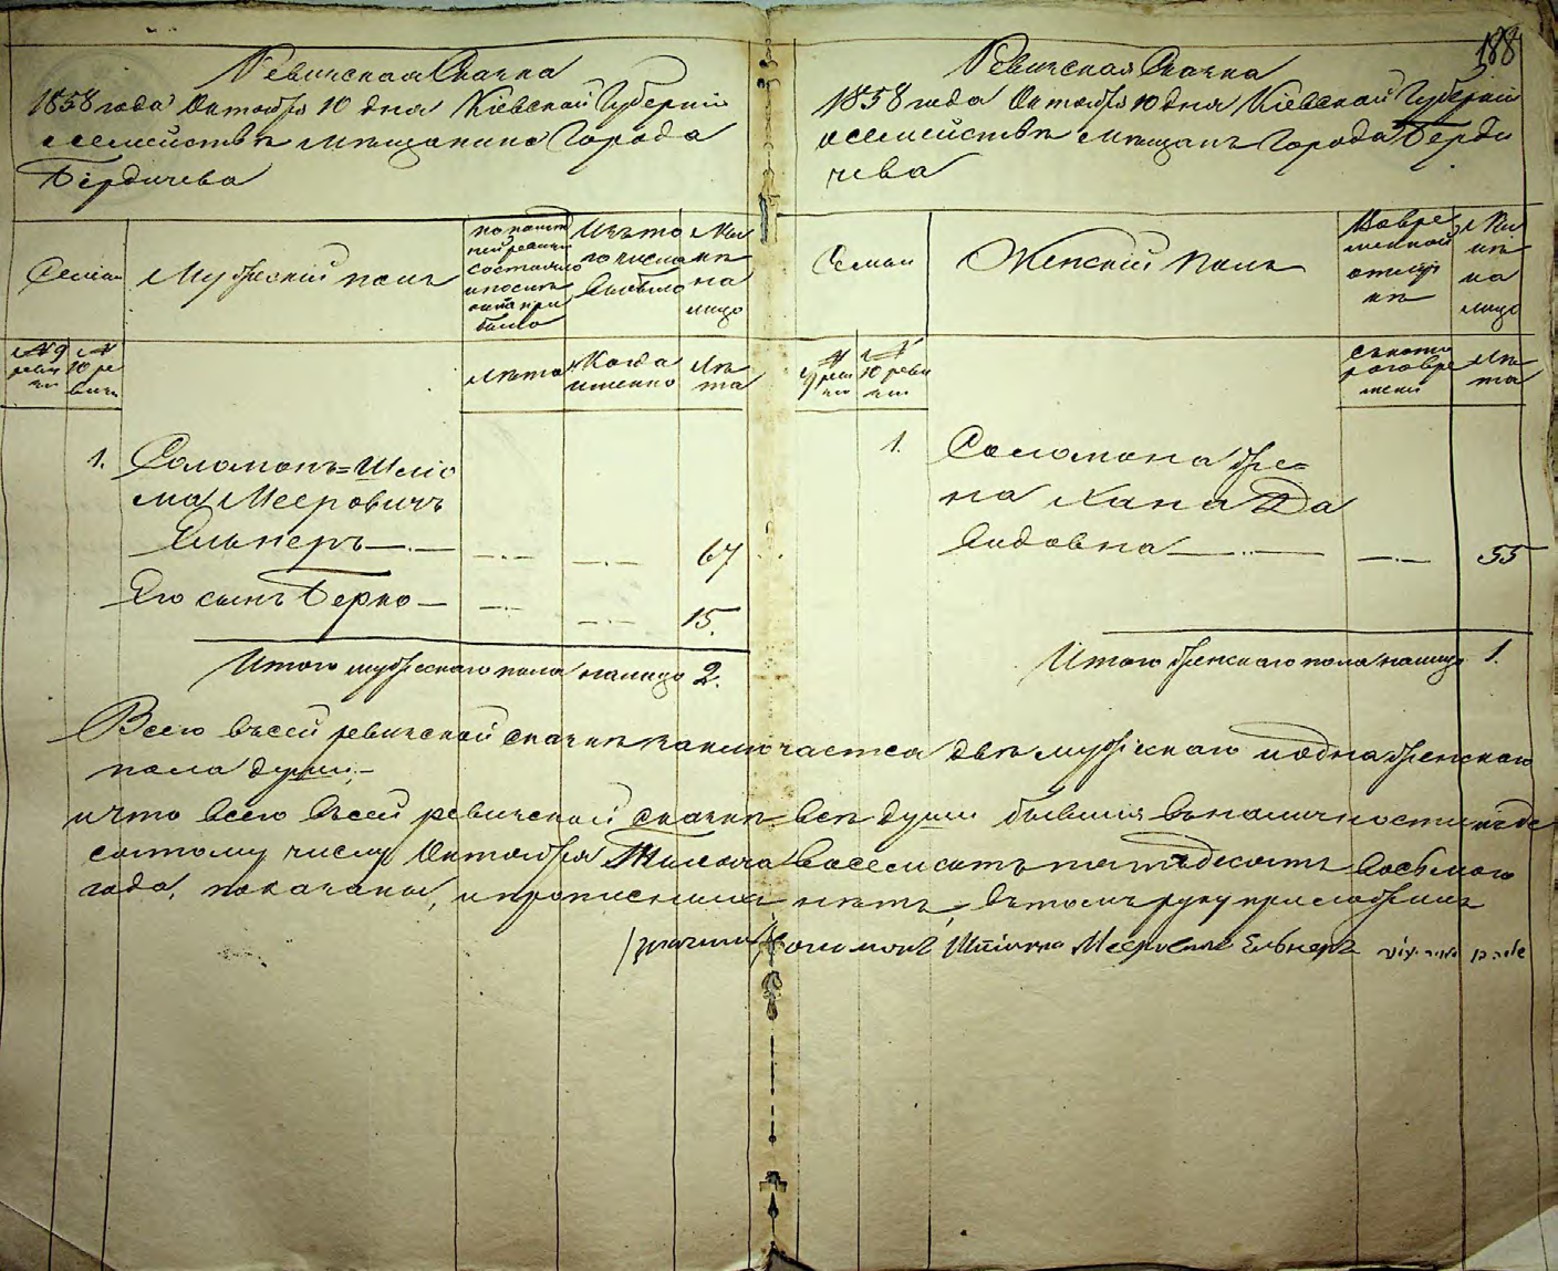 188
Ревизская Сказка
1858 года Октября 10 дня Кіевской Губерніи
о семействѣ мѣщанина Города
Бердичева
Семьи
Мужескій полъ
по послѣд
ней ревизіи
состояло
и послѣ
того при
было
Изъ того
числа
выбыло
Ны
нѣ
на
лицо
№ 9
реви
зіи
№
10 ре
визіи
лѣта
Когда
именно
лѣ
та
1. Соломонъ=Шліо
ма Мееровичъ
Ельнеръ 67
Его сынъ Берко 15.
Итого мужескаго пола налицо 2.
Ревизская Сказка
1858 года Октября 10 дня Кіевской Губерніи
о семействѣ мѣщанъ Города Берди
чева
Семьи
Женскій полъ
Во вре
менной
отлуч
кѣ
Ны
нѣ
на
лицо
№
9 реви
зіи
№
10 реви
зіи
Съ кото
раго вре
мени
лѣ
та
1. Соломона же=
на Хана Да
видовна 55
Итого женскаго пола налицо 1.
Всего въ сей ревизской сказкѣ заключается двѣ мужескаго и одна женскаго
пола души.
и что всего въ сей ревизской сказкѣ всѣ души бывшія въ наличности къ де
сятому числу Октября Тысяча восемсотъ пятьдесятъ восьмого
года, показаны, и прописныхъ нѣтъ, въ томъ руку приложилъ
Соломонъ Шліома Мееровичъ Ельнеръ